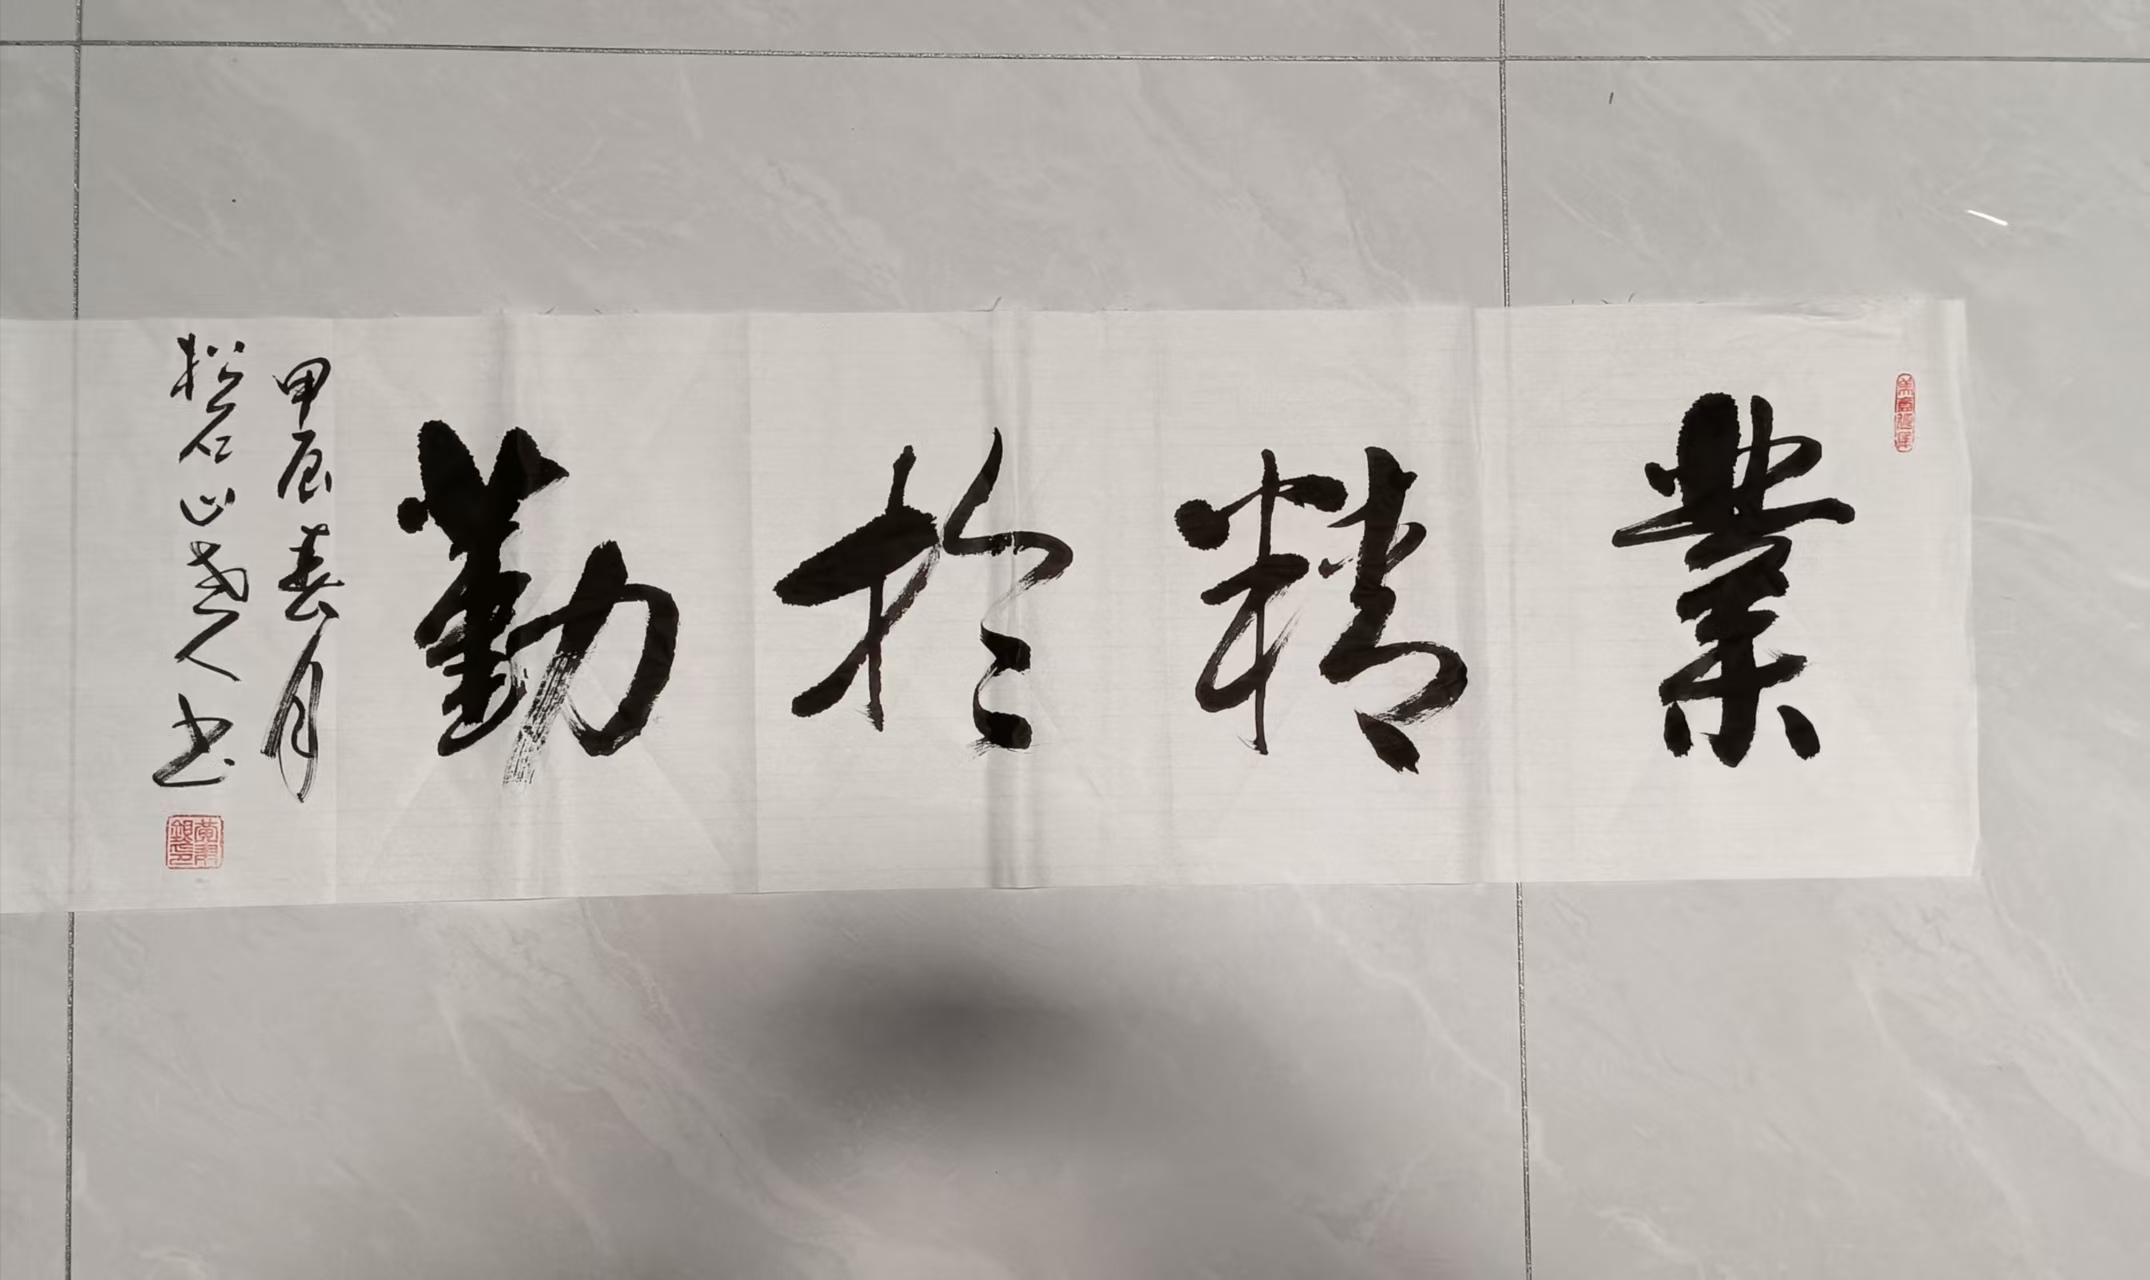 業精於勤
甲辰春月
松石山老人书